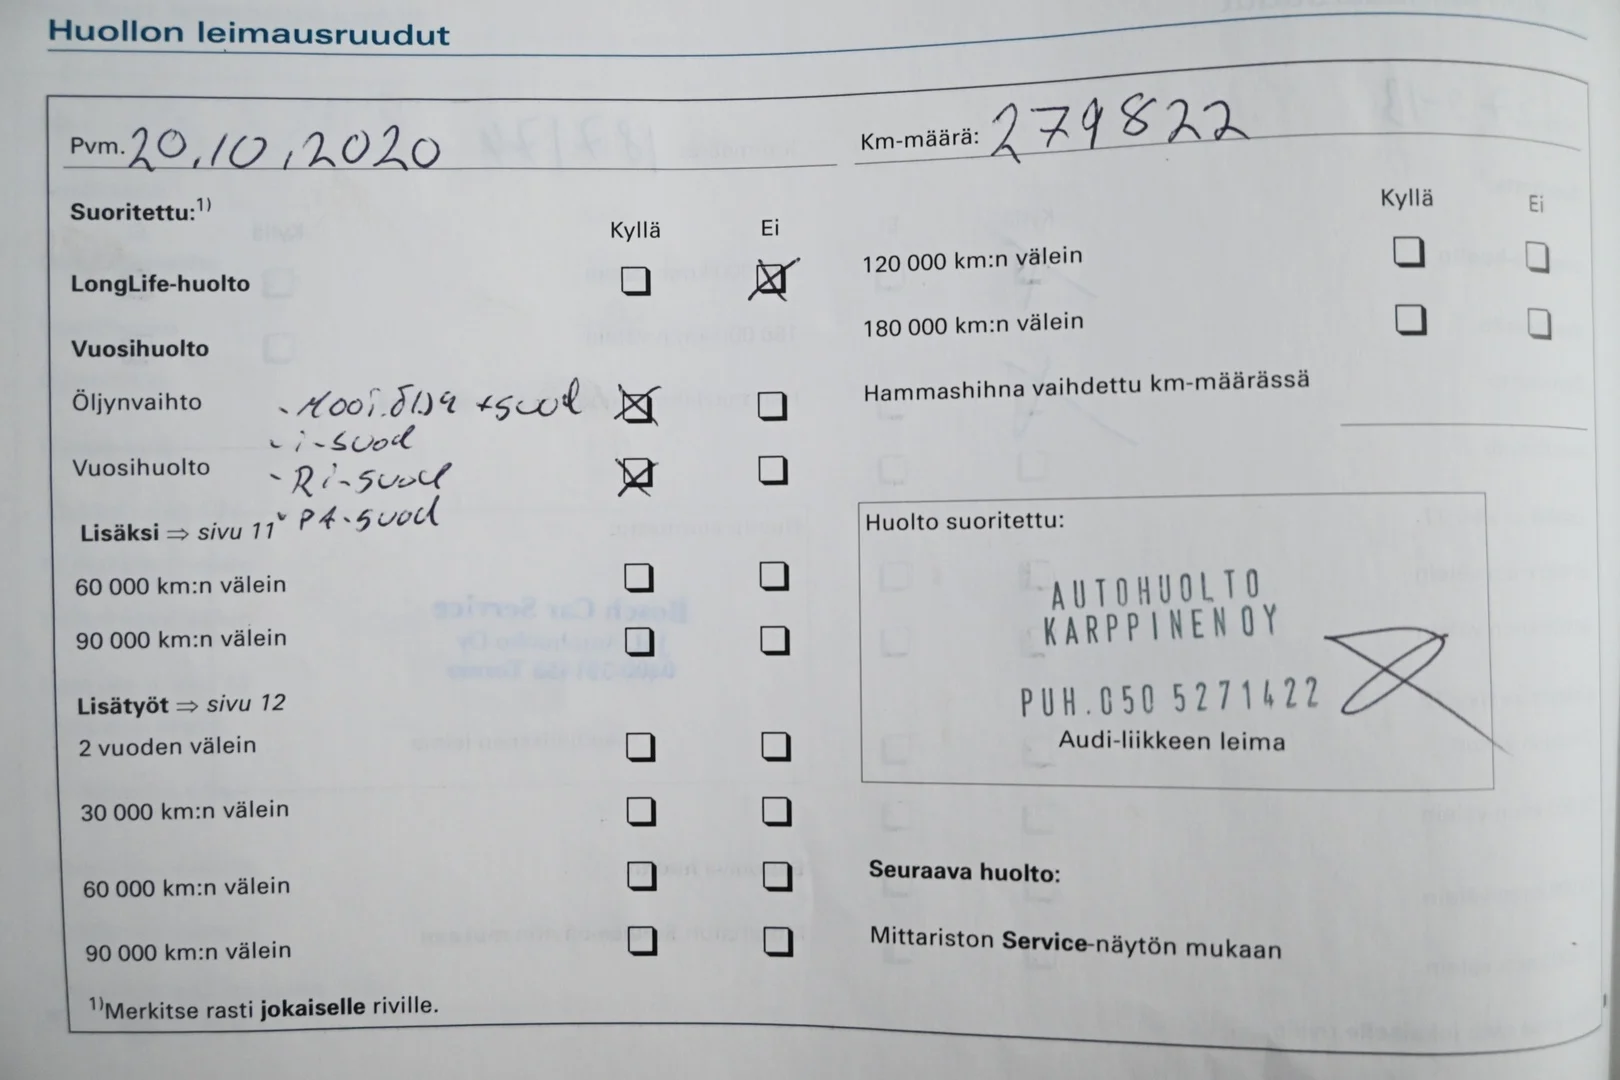 Huollon leimausruudut
Pvm. 20.10.2020
Km-määrä: 279822
Suoritettu:1)
Kyllä Ei
LongLife-huolto
Vuosihuolto
Öljynvaihto - Moot.öljy +suod
- i-suod
Vuosihuolto - Ri-suod
Lisäksi ⇒ sivu 11 - PA-suod
60 000 km:n välein
90 000 km:n välein
Lisätyöt ⇒ sivu 12
2 vuoden välein
30 000 km:n välein
60 000 km:n välein
90 000 km:n välein
1)Merkitse rasti jokaiselle riville.
Kyllä Ei
120 000 km:n välein
180 000 km:n välein
Hammashihna vaihdettu km-määrässä
Huolto suoritettu:
AUTOHUOLTO
KARPPINEN OY
PUH. 050 5271422
Audi-liikkeen leima
Seuraava huolto:
Mittariston Service-näytön mukaan